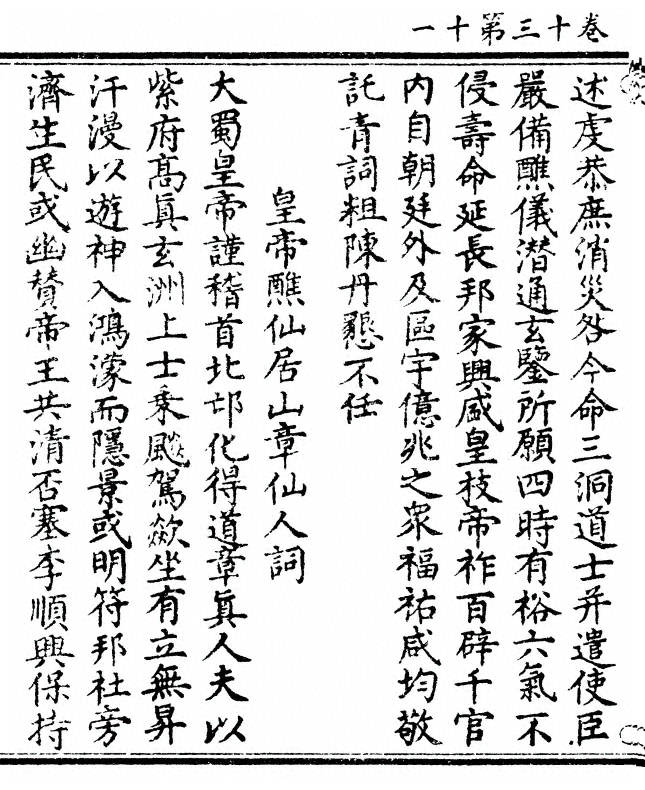 卷十三第十一
述虔恭庶消災咎今命三洞道士并遣使臣
嚴備醮儀潛通玄鑒所願四時有裕六氣不
侵壽命延長邦家興盛皇枝帝祚百辟千官
內自朝廷外及區宇億兆之衆福祐咸均敬
託青詞粗陳丹懇不任
皇帝醮仙居山章仙人詞
大蜀皇帝謹稽首北邙化得道章眞人夫以
紫府高眞玄洲上士乘飈駕歘坐有立無昇
汗漫以遊神入鴻濛而隱景或明符邦社旁
濟生民或幽贊帝王共清否塞李順興保持